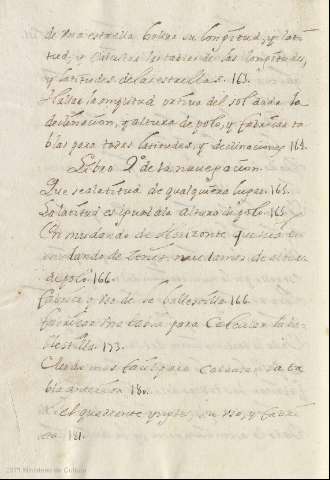 de una estrella hallar su longitud, y lati
tud, y calcular las tablas de las longitudes,
y latitudes de las estrellas. 163.
Hallar la amplitud ortiva del sol dada la
declinacion, y altura de polo, y fabricar ta
blas para todas latitudes, y declinaciones 164.
Libro 2º de la navegacion.
Que sea latitud de qualquiera lugar. 165.
La latitud es igual a la altura de polo. 165
mudando de Horizonte
mudando de Zenit, mudamos de altura
de polo 166.
fabrica y uso de la ballestilla 166
fabricar una tabla para
llestilla. 173.
mas facil para calcular la ta
bla antecedente 180.
el quadrante su uso, y fabri
ca 181.
2011 Ministerio de Cultura